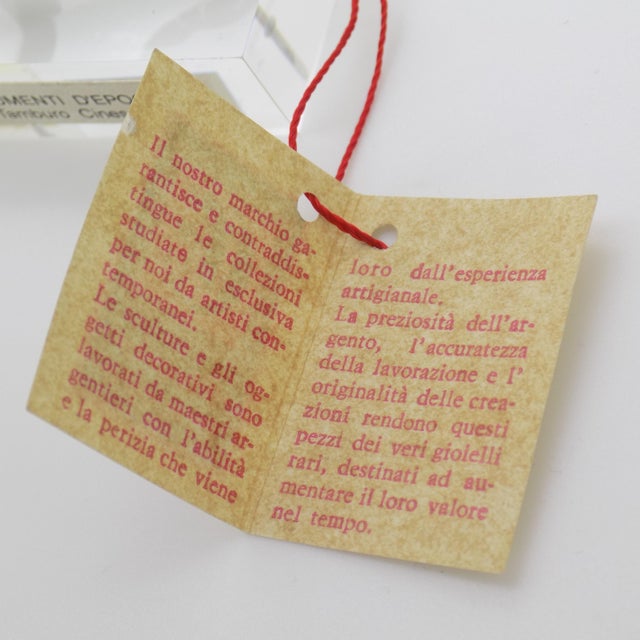 OMENTI D'EPO
Tamburo Cines
Il nostro marchio ga-
rantisce e contraddis-
tingue le collezioni
studiate in esclusiva
per noi da artisti con-
temporanei.
Le sculture e gli og-
getti decorativi sono
lavorati da maestri ar-
gentieri con l'abilità
e la perizia che viene
loro dall'esperienza
artigianale.
La preziosità dell'ar-
gento, l'accuratezza
della lavorazione e l'
originalità delle crea-
zioni rendono questi
pezzi dei veri gioielli
rari, destinati ad au-
mentare il loro valore
nel tempo.